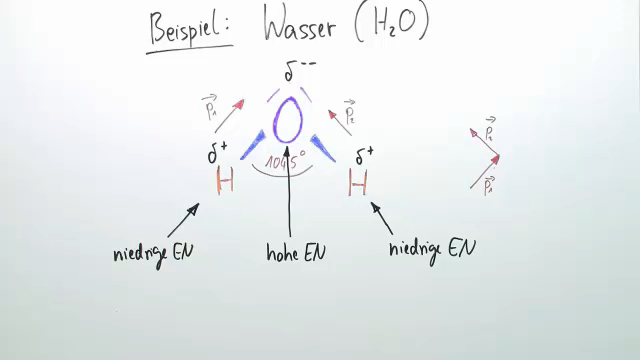 Beispiel: Wasser (H₂O)
δ--
p₁→ p₂→ p₂→
δ+ O δ+
H 104,5° H p₁→
niedrige EN hohe EN niedrige EN